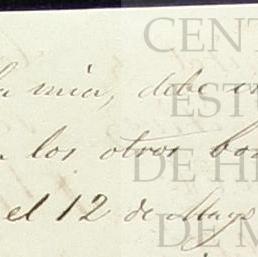 la mia, debe en
los otros bo
el 12 de Mayo
CENT
EST
DE HI
DE M